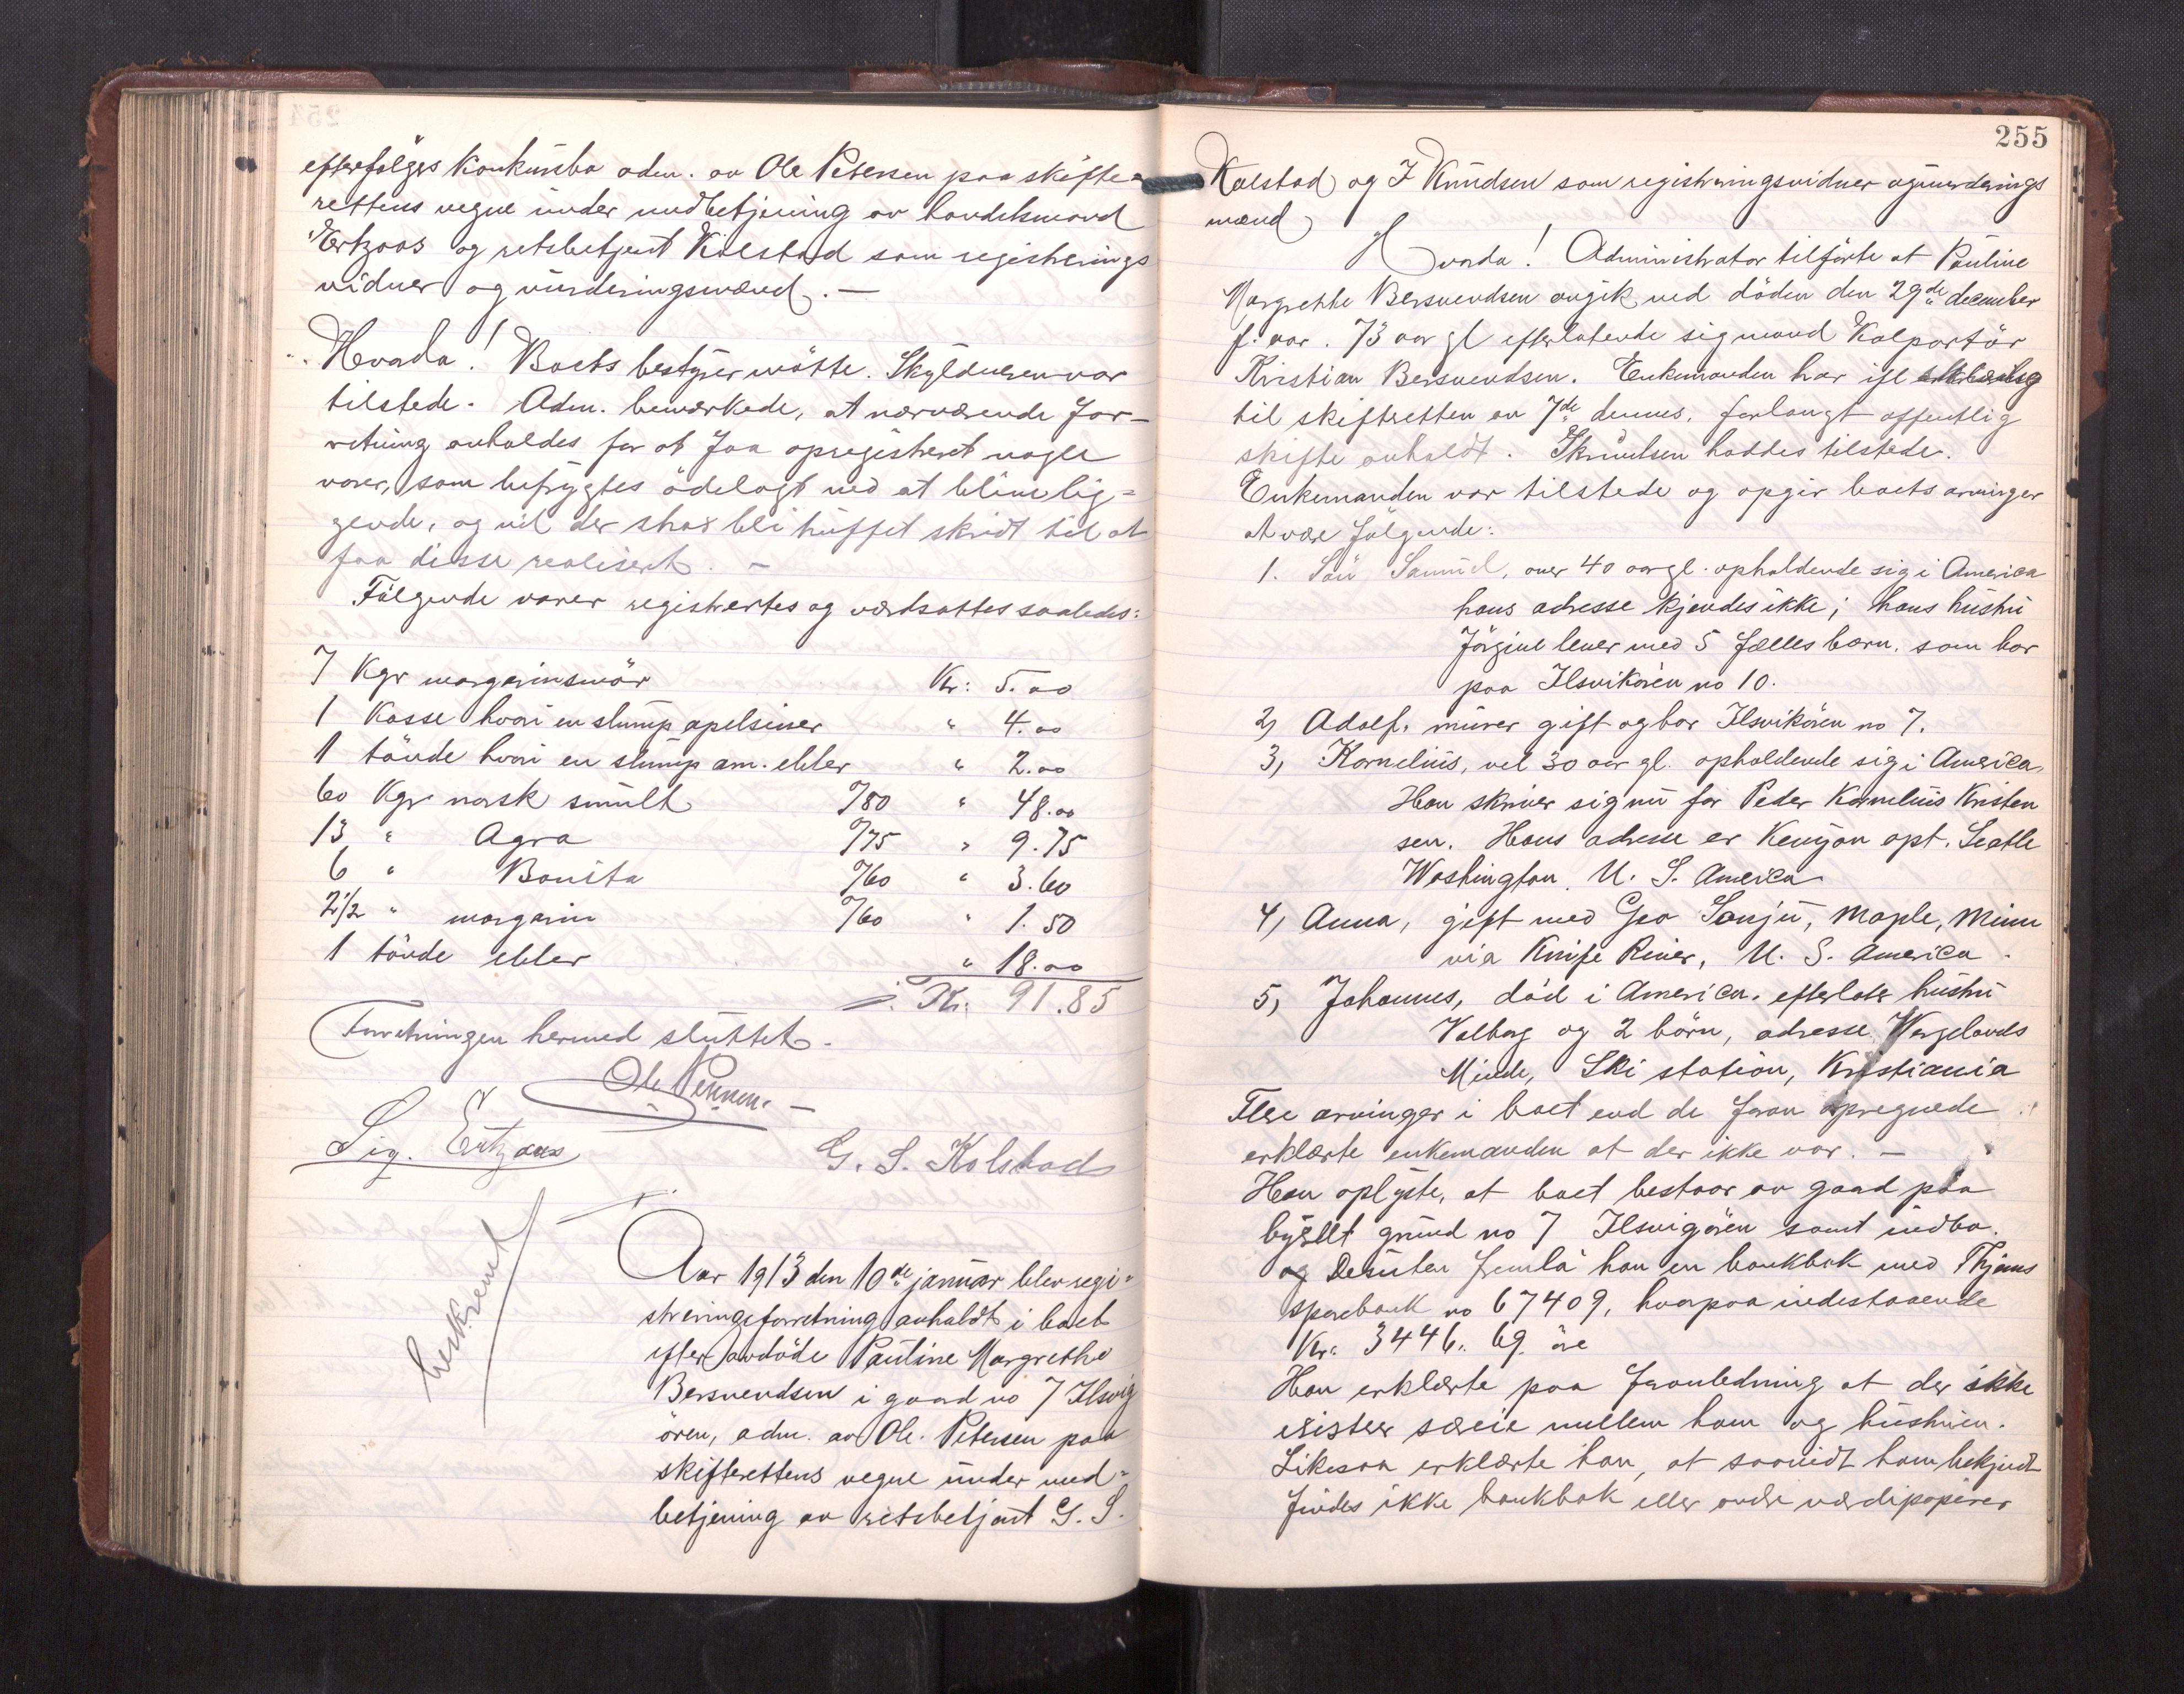 efterfølges konkursbo adm. av Ole Petersen paa skifte-
rettens vegne under medbetjening av handelsmand
Ertzaas og retsbetjent Kolstad som registrerings
vidner og vurderingsmænd. —
Hvorda! Boets bestyrer møtte. Skyldneren var
tilstede. Adm. bemærkede, at nærværende for-
retning anholdes for at faa opregistreret nogle
varer, som befrygtes ödelagt ved at blive lig-
gende, og vil der strax bli truffet skridt til at
faa disse realisert. —
Fölgende varer registrertes og værdsattes saaledes:
7 Kgr margarinsmör Kr: 5.00
1 Kasse hvori en slump apelsiner " 4.00
1 tönde hvori en slump am. ebler " 2.00
60 Kgr norsk smult %80 " 48.00
13 " Agra %75 " 9.75
6 " Bonita %60 " 3.60
2½ " margarin %60 " 1.50
1 tönde ebler " 18.00
Kr: 91.85
Forretningen hermed sluttet.
Ole Petersen. —
Sig. Ertzaas
G. S. Kolstad
beskrevet
Aar 1913 den 10de januar blev regi-
streringsforretning anholdt i boet
efter avdöde Pauline Margrethe
Bersvendsen i gaard no 7 Ilsvig
ören, adm. av Ole Petersen paa
skifterettens vegne under med-
betjening av retsbetjent G. S.
255
Kolstad og J Knudsen som registreringsvidner og vurderings
mænd
Hvorda! Administrator tilförte at Pauline
Margrethe Bersvendsen avgik ved döden den 29de december
f. aar. 73 aar gl efterlatende sig mand Kolportör
Kristian Bersvendsen. Enkemanden har ifl
til skifteretten av 7de dennes. forlangt offentlig
skifte anholdt. Skrivelsen haddes tilstede.
Enkemanden var tilstede og opgir boets arvinger
at være fölgende:
1. Sön Samuel, over 40 aar gl. opholdende sig i America
hans adresse kjendes ikke; hans hustru
Jörgine lever med 5 fælles barn. som bor
paa Ilsvikören no 10.
2, Adolf. murer gift og bor Ilsvikören no 7.
3, Kornelius, vel 30 aar gl. opholdende sig i America,
Han skriver sig nu for Peder Kornelius Kristen
sen. Hans adresse er Kenyon apt. Seatle
Washington, U. S. America
4, Anna, gift med Geo Sanju, Maple, Minn
via Knife River, U. S. America.
5, Johannes, död i America. efterlater hustru
Valborg og 2 börn, adresse Wergelands
Minde, Ski station, Kristiania
Flere arvinger i boet end de foran opregnede
erklærte enkemanden at der ikke var. —
Han oplyste, at boet bestaar av gaard paa
byxlet grund no 7 Ilsvigören samt indbo.
og Desuten fremla han en bankbok med Thjems
sparebank no 67409, hvorpaa indestaaende
Kr. 3446. 69 öre
Han erklærte paa foranledning at der ikke
exister særeie mellem ham og hustruen.
Likesaa erklærte han, at saavidt ham bekjendt
findes ikke bankbok eller andre værdipapirer